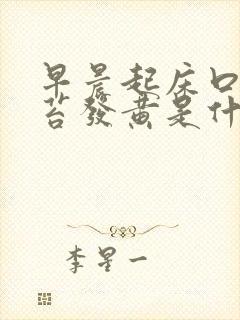 早晨起床口
苔发黄是什
李星一